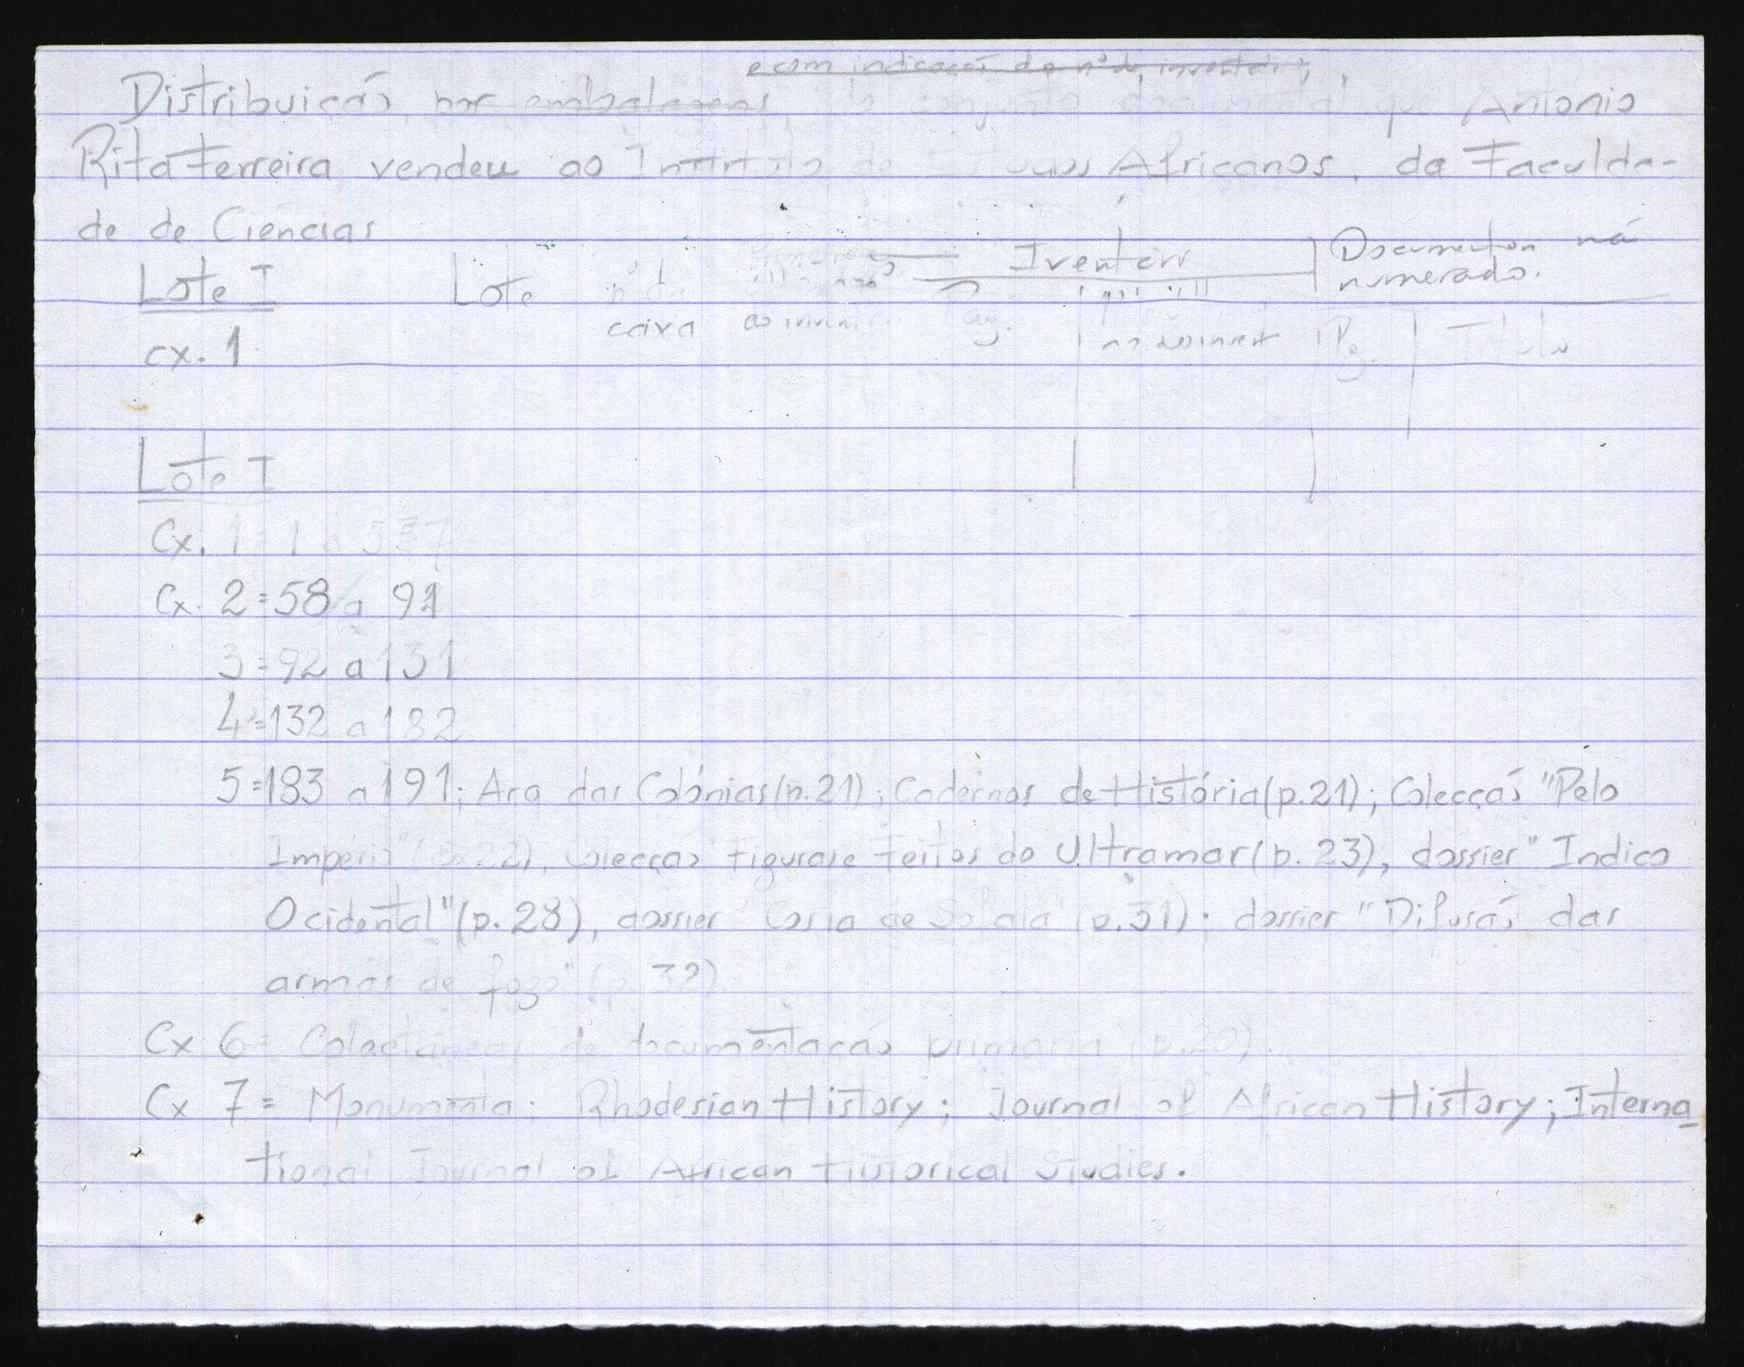 e com indicação do nº de inventário,
Distribuição por embalagens, do conjunto documental que António
Rita Ferreira vendeu ao Instituto de Estudos Africanos, da Faculda-
de de Ciências
Lote I Lote nº da caixa Inventário Documentos não numerados.
cx. 1 Pág. Pg. Título
Lote I
Cx. 1 = 1 a
Cx. 2 = 58 a 91
3 = 92 a 131
4 = 132 a 182
5 = 183 a 191; Ara das Colónias (p. 21); Cadernos de História (p. 21); Colecção "Pelo
Império" (p. 22), Colecção Figuras e Feitos do Ultramar (p. 23), dossier "Indico
Ocidental" (p. 28), dossier "Costa de Sofala" (p. 31); dossier "Difusão das
armas de fogo" (p. 32)
Cx 6 = Colectâneas de documentação primária (p. 20).
Cx 7 = Monumenta; Rhodesian History; Journal of African History; Interna
tional Journal of African Historical Studies.